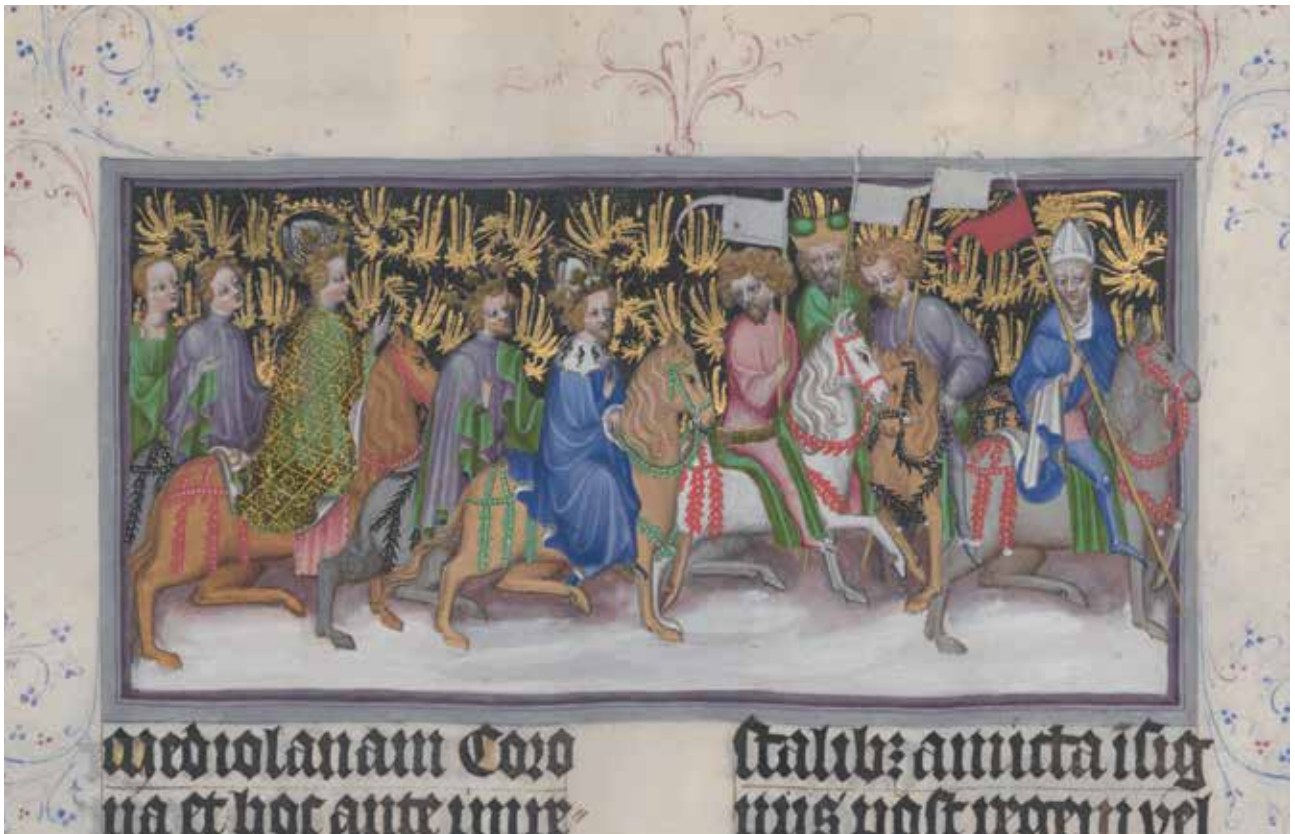 mediolanam Coro
na et hoc ante impe
stalib; amicta isig
niis post regem vel